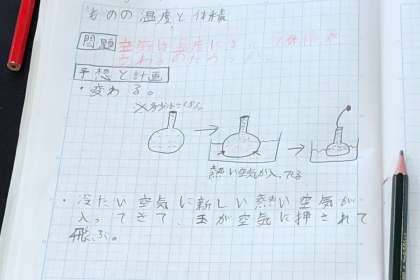 ものの温度と体積
問題 空気は温度によ
予想と計画
・変わる。
熱い空気が入ってる
・冷たい空気に新しい熱い空気が
入ってきて、玉が空気に押されて
飛ぶ。